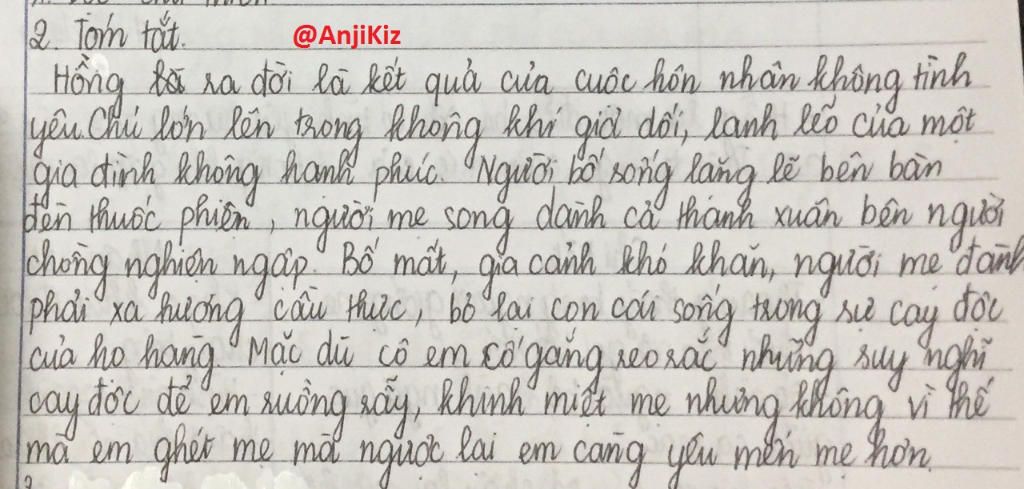 2. Tóm tắt.
@AnjiKiz
Hồng ra đời là kết quả của cuộc hôn nhân không tình
yêu. Chú lớn lên trong không khí giả dối, lạnh lẽo của một
gia đình không hạnh phúc. Người bố sống lặng lẽ bên bàn
đèn thuốc phiện, người mẹ song dành cả thanh xuân bên người
chồng nghiện ngập. Bố mất, gia cảnh khó khăn, người mẹ đành
phải xa hương cầu thực, bỏ lại con cái sống trong sự cay độc
của họ hàng. Mặc dù cô em cố gắng reo rắc những suy nghĩ
cay độc để em ruồng rẫy, khinh miệt mẹ nhưng không vì thế
mà em ghét mẹ mà ngược lại em càng yêu mến mẹ hơn.